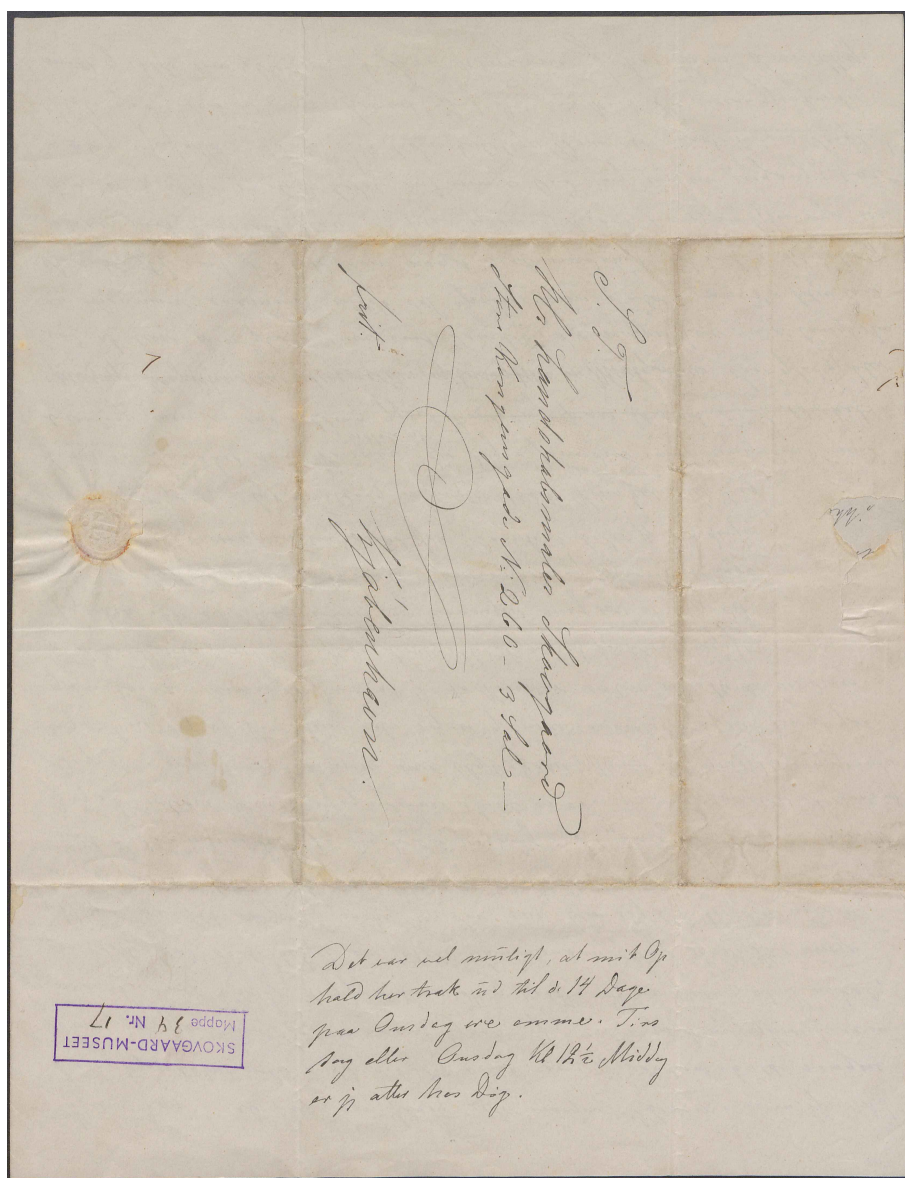 S. T.
Hr. Landskabsmaler Skovgaard
Store Kongensgade No. 260 - 3 Sal -
frit.
Kjøbenhavn.
Det var vel muligt, at mit Op
hold her trak ud til de 14 Dage
paa Onsdag ere omme. Tirs
dag eller Onsdag Kl 12½ Middag
er jeg atter hos Dig.
SKOVGAARD-MUSEET
Mappe 34 Nr. 17